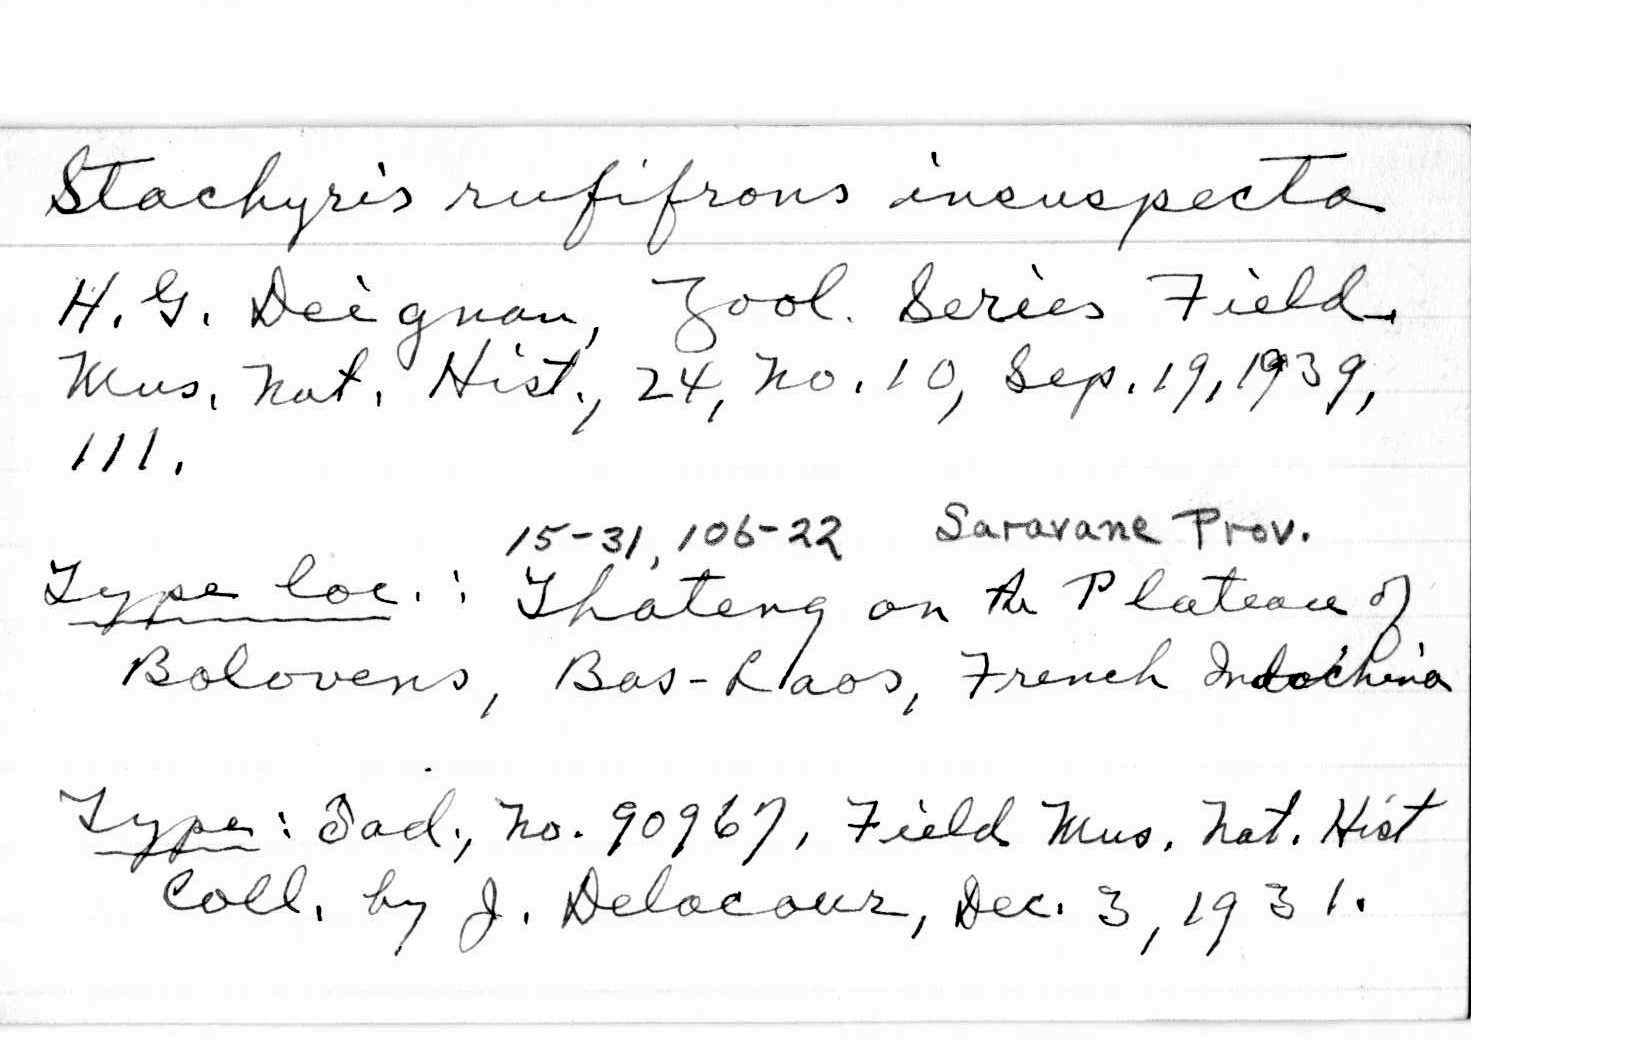 Stachyris rufifrons insuspecta
H. G. Deignan, Zool. Series Field
Mus. Nat. Hist., 24, No. 10, Sep. 19, 1939,
111.
15-31, 106-22 Saravane Prov.
Type loc.: Thateng on the Plateau of
Bolovens, Bas-Laos, French Indochina
Type: ♂ad., No. 90967, Field Mus. Nat. Hist
Coll. by J. Delacour, Dec. 3, 1931.